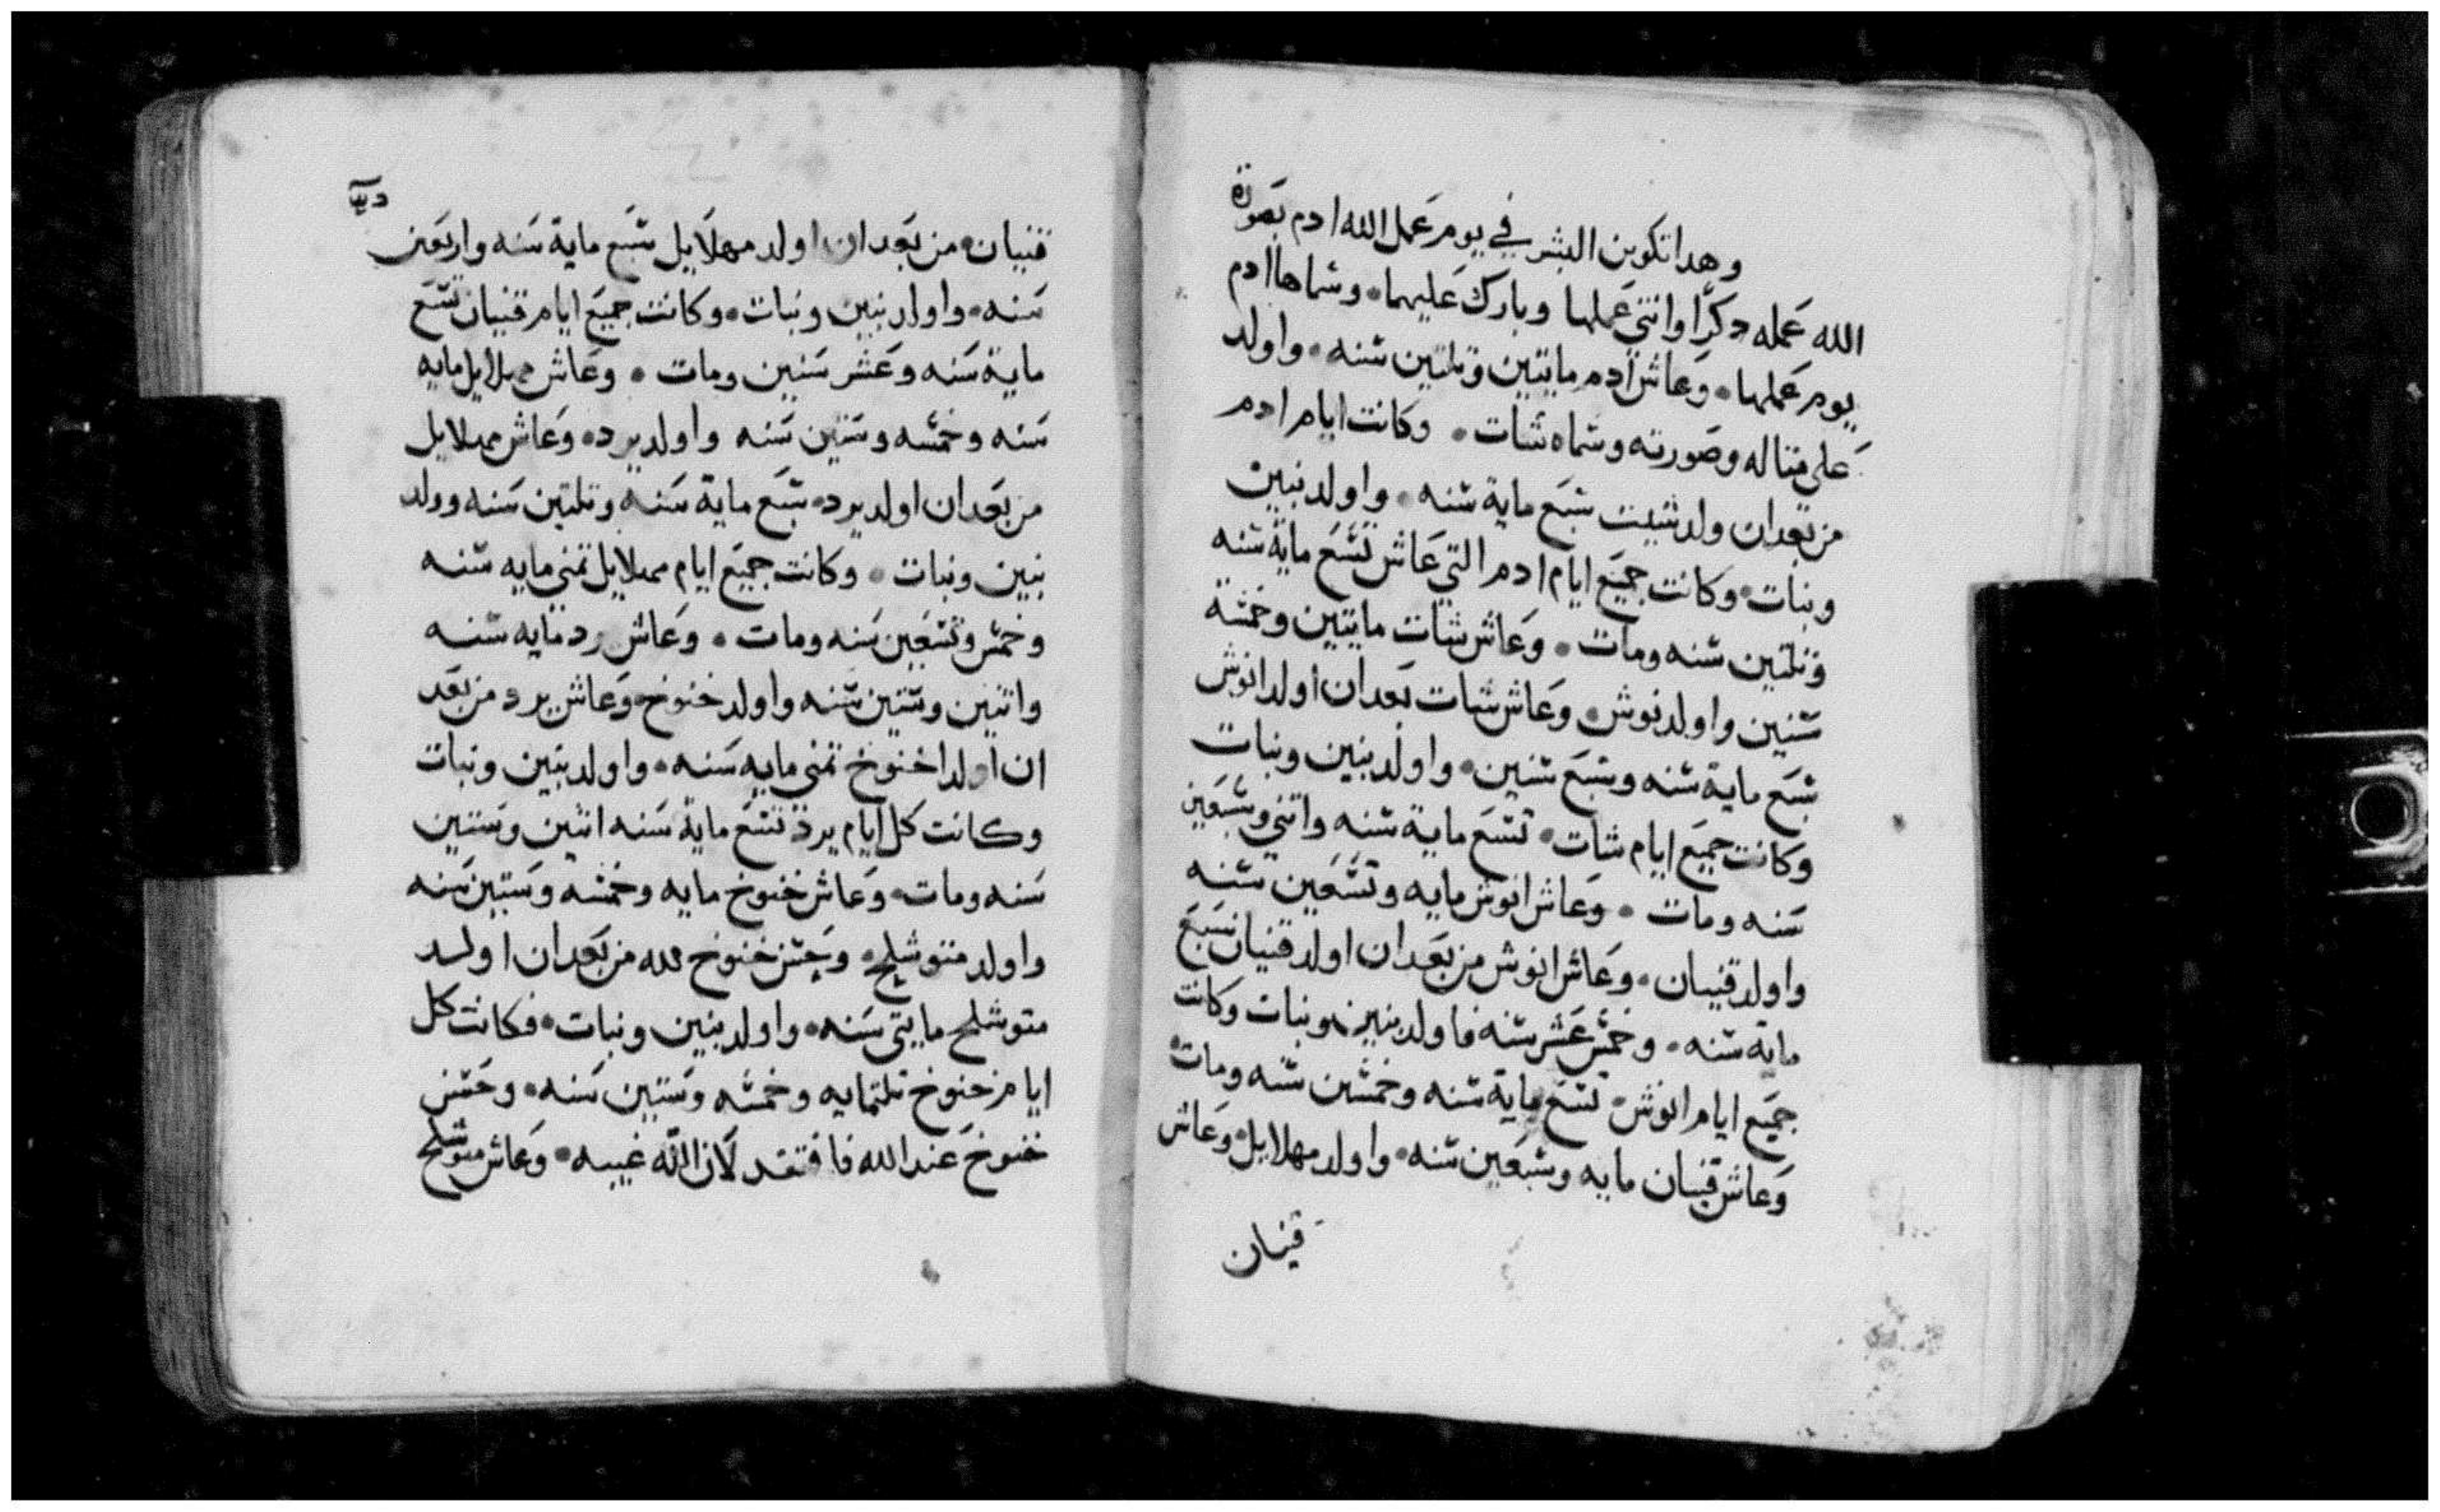 وهدا تكوين البشر في يوم عمل الله ادم بصورة
الله عمله دكرًا وانثي عملها وبارك عليهما • وسماها ادم
يوم عملها • وعاش ادم مايتين وتلتين سنه • واولد
على متاله وصورته وسماه شات • وكانت ايام ادم
من بعد ان ولد شيت سبع ماية سنه • واولد بنين
وبنات • وكانت جميع ايام ادم التي عاش تسع ماية سنه
وتلتين سنه ومات • وعاش شات مايتين وخمسة
سنين واولد نوش • وعاش شات بعد ان اولد انوش
سبع ماية سنه وسبع سنين • واولد بنين وبنات
وكانت جميع ايام شات • تسع ماية سنه واتني وسبعين
سنه ومات • وعاش انوش مايه وتسعين سنه
واولد قنيان • وعاش انوش من بعد ان اولد قنيان سبع
ماية سنه • وخمس عشر سنه فاولد بنين وبنات وكانت
جميع ايام انوش • تسع ماية سنه وخمسين سنه ومات
وعاش قنيان مايه وسبعين سنه • واولد مهلايل • وعاش
قنيان
قنيان • من بعد ان اولد مهلايل سبع ماية سنه واربعين
سنه • واولد بنين وبنات • وكانت جميع ايام قنيان تسع
ماية سنه وعشر سنين ومات • وعاش مهلايل مايه
سنه وخمسه وستين سنه واولد يرد • وعاش مهلايل
من بعد ان اولد يرد • سبع ماية سنه وتلتين سنه وولد
بنين وبنات • وكانت جميع ايام مهلايل تمني مايه سنه
وخمس وتسعين سنه ومات • وعاش رد مايه سنه
واتنين وستين سنه واولد خنوخ • وعاش يرد من بعد
ان اولد اخنوخ تمني مايه سنه • واولد بنين وبنات
وكانت كل ايام يرد تسع ماية سنه اتنين وستين
سنه ومات • وعاش خنوخ مايه وخمسه وستين سنه
واولد متوشلح • وحسن خنوخ لله من بعد ان اولد
متوشلح مايتي سنه • واولد بنين وبنات • فكانت كل
ايام خنوخ تلتمايه وخمسه وستين سنه • وحسن
خنوخ عند الله فافتقد لان الله غيبه • وعاش متوشلح